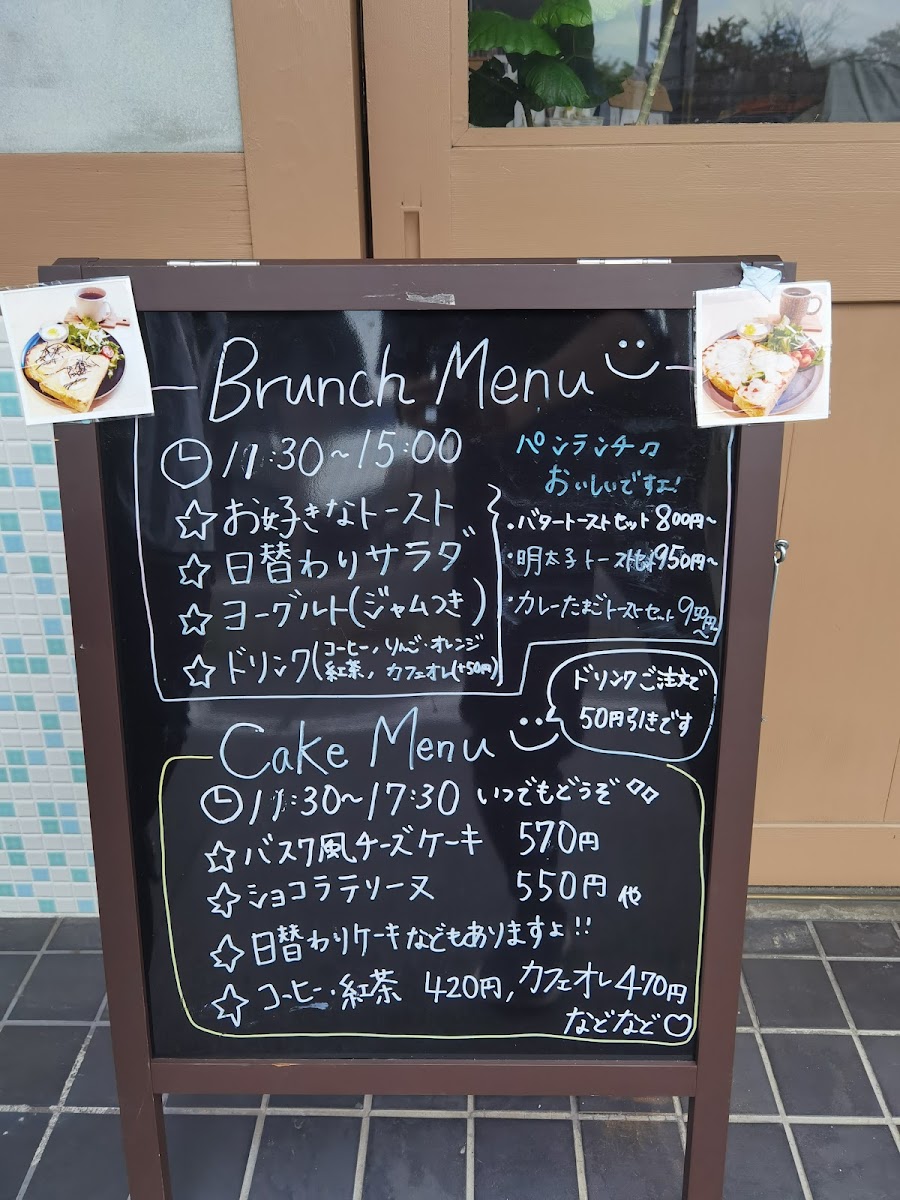 Brunch Menu
11:30~15:00
パンランチ♫
おいしいですよ!
☆お好きなトースト
☆日替わりサラダ
☆ヨーグルト(ジャムつき)
☆ドリンク(コーヒー、りんご・オレンジ
紅茶、カフェオレ(+50円)
・バタートーストセット 800円~
・明太子トーストセット 950円~
・カレーたまごトーストセット 950円~
ドリンクご注文で
50円引きです
Cake Menu
11:30~17:30 いつでもどうぞ
☆バスク風チーズケーキ 570円
☆ショコラテリーヌ 550円 や
☆日替わりケーキなどもありますよ!!
☆コーヒー・紅茶 420円, カフェオレ470円
などなど♡